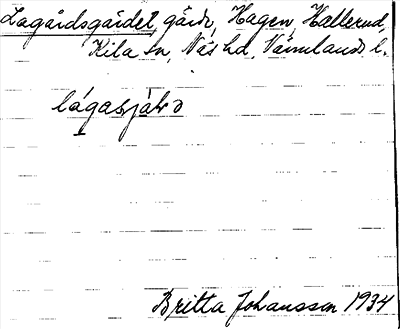 Lagårdsgärdet, gärde, Hagen, Hällerud,
Kila sn, Näs hd, Värmlands l.
Britta Johansson 1934